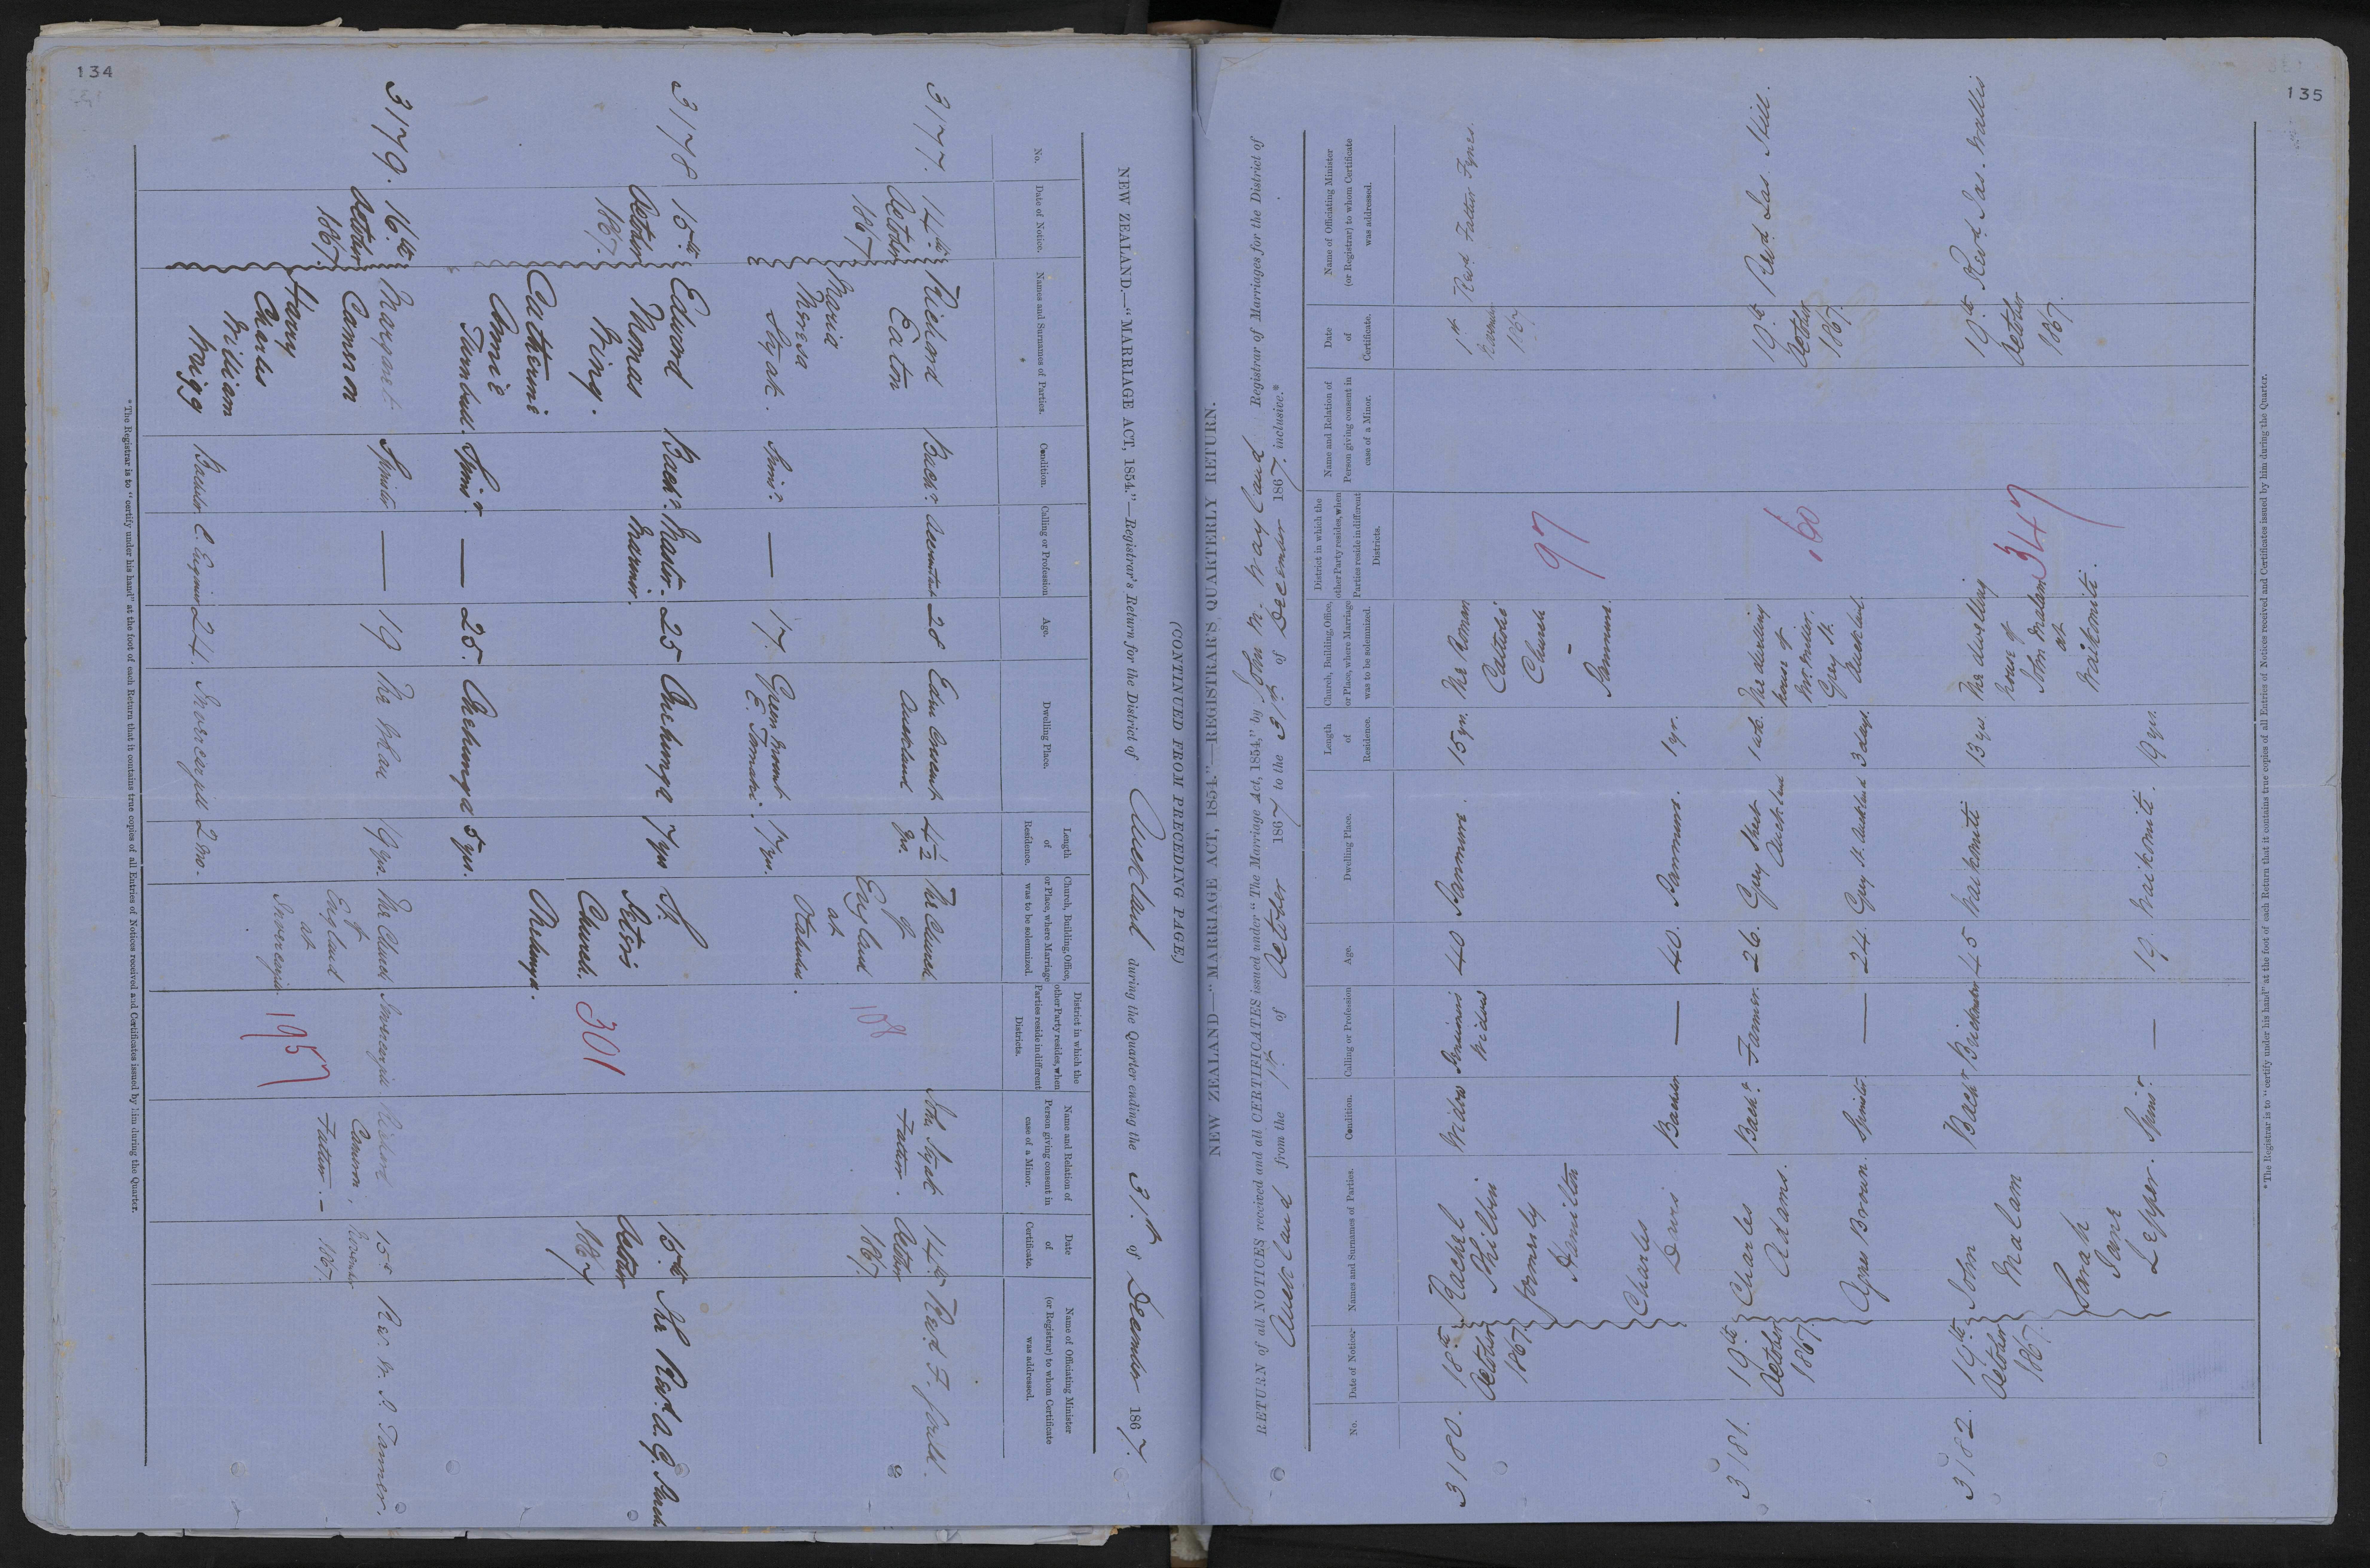 134
NEW ZEALAND.—"MARRIAGE ACT, 1854."—Registrar's Return for the District of Auckland during the Quarter ending the 31st of December 1867.
(CONTINUED FROM PRECEDING PAGE.)
No.
Date of Notice.
Names and Surnames of Parties.
Condition.
Calling or Profession
Age.
Dwelling Place.
Length
of
Residence.
Church, Building, Office,
or Place, where Marriage
was to be solemnized.
District in which the
other Party resides, when
Parties reside in different
Districts.
Name and Relation of
Person giving consent in
case of a Minor.
Date
of
Certificate.
Name of Officiating Minister
(or Registrar) to whom Certificate
was addressed.
3177.
14th
October
1867
Richard
Eaton
Bachr.
28
Eden Crescent
Auckland
4½
yrs.
The Church
of
England
at
Otahuhu.
108
John Syak
Father.
14th
October
1867
Revd. F. Gould.
Maria
Theresa
Syak.
Spinr.
—
17.
Green Mount
E. Tamaki.
17 yrs.
3178
15th
October
1867.
Edward
Thomas
Wing.
Bachr.
Master
Mariner.
25
Onehunga
7 yrs
St.
Peter's
Church.
Onehunga.
301
15th
October
1867
The Revd. A. G.
Catherine
Annie
Turnbull.
Spinr
—
25.
Onehunga
5 yrs.
3179.
16th
October
1867.
Margaret
Cameron
Spinster
—
19
The Whau
19 yrs.
The Church
of
England
at
Invercargill.
Invercargill
195
Richard
Cameron,
Father.—
15th
November
1867.
Rev. W. P. Tanner.
Harry
Charles
William
Wrigg
Bachelor
C. Engineer
24.
Invercargill
2 mo.
*The Registrar is to "certify under his hand" at the foot of each Return that it contains true copies of all Entries of Notices received and Certificates issued by him during the Quarter.
135
NEW ZEALAND—"MARRIAGE ACT, 1854."—REGISTRAR'S QUARTERLY RETURN.
RETURN of all NOTICES received and all CERTIFICATES issued under "The Marriage Act, 1854," by John N. Wayland Registrar of Marriages for the District of
Auckland from the 1st of October 1867 to the 31st of December 1867. inclusive.*
No.
Date of Notice.
Names and Surnames of Parties.
Condition.
Calling or Profession
Age.
Dwelling Place.
Length
of
Residence.
Church, Building, Office,
or Place, where Marriage
was to be solemnized.
District in which the
other Party resides, when
Parties reside in different
Districts.
Name and Relation of
Person giving consent in
case of a Minor.
Date
of
Certificate.
Name of Officiating Minister
(or Registrar) to whom Certificate
was addressed.
3180.
18th
October
1867.
Rachel
Philbin
formerly
Hamilton
Widow
Pensioners
Widow
40
Panmure.
15 yr.
The Roman
Catholic
Church
—
Panmure.
97
1st
1867
Revd. Father Fynes.
Charles
Davis
Bachelor
—
40.
Panmure.
1 yr.
3181.
19th
October
1867.
Charles
Adams.
Bachr.
Farmer.
26.
Grey Street
Auckland
1 wk.
The dwelling
house of
Mr. Miller.
Grey St.
Auckland.
160
19th
October
1867.
Revd. Jas. Hill.
Agnes Brown.
Spinster
—
24.
Grey St. Auckland
3 days.
3182.
19th
October
1867.
John
Malam
Bachr
Brickmaker
45
Waikomiti
13 yrs
The dwelling
house of
John Malam
at
Waikomiti.
347
19th
October
1867.
Revd. Jas. Wallis
Sarah
Jane
Lepper.
Spinr.
—
19.
Waikomiti.
19 yrs.
*The Registrar is to "certify under his hand" at the foot of each Return that it contains true copies of all Entries of Notices received and Certificates issued by him during the Quarter.